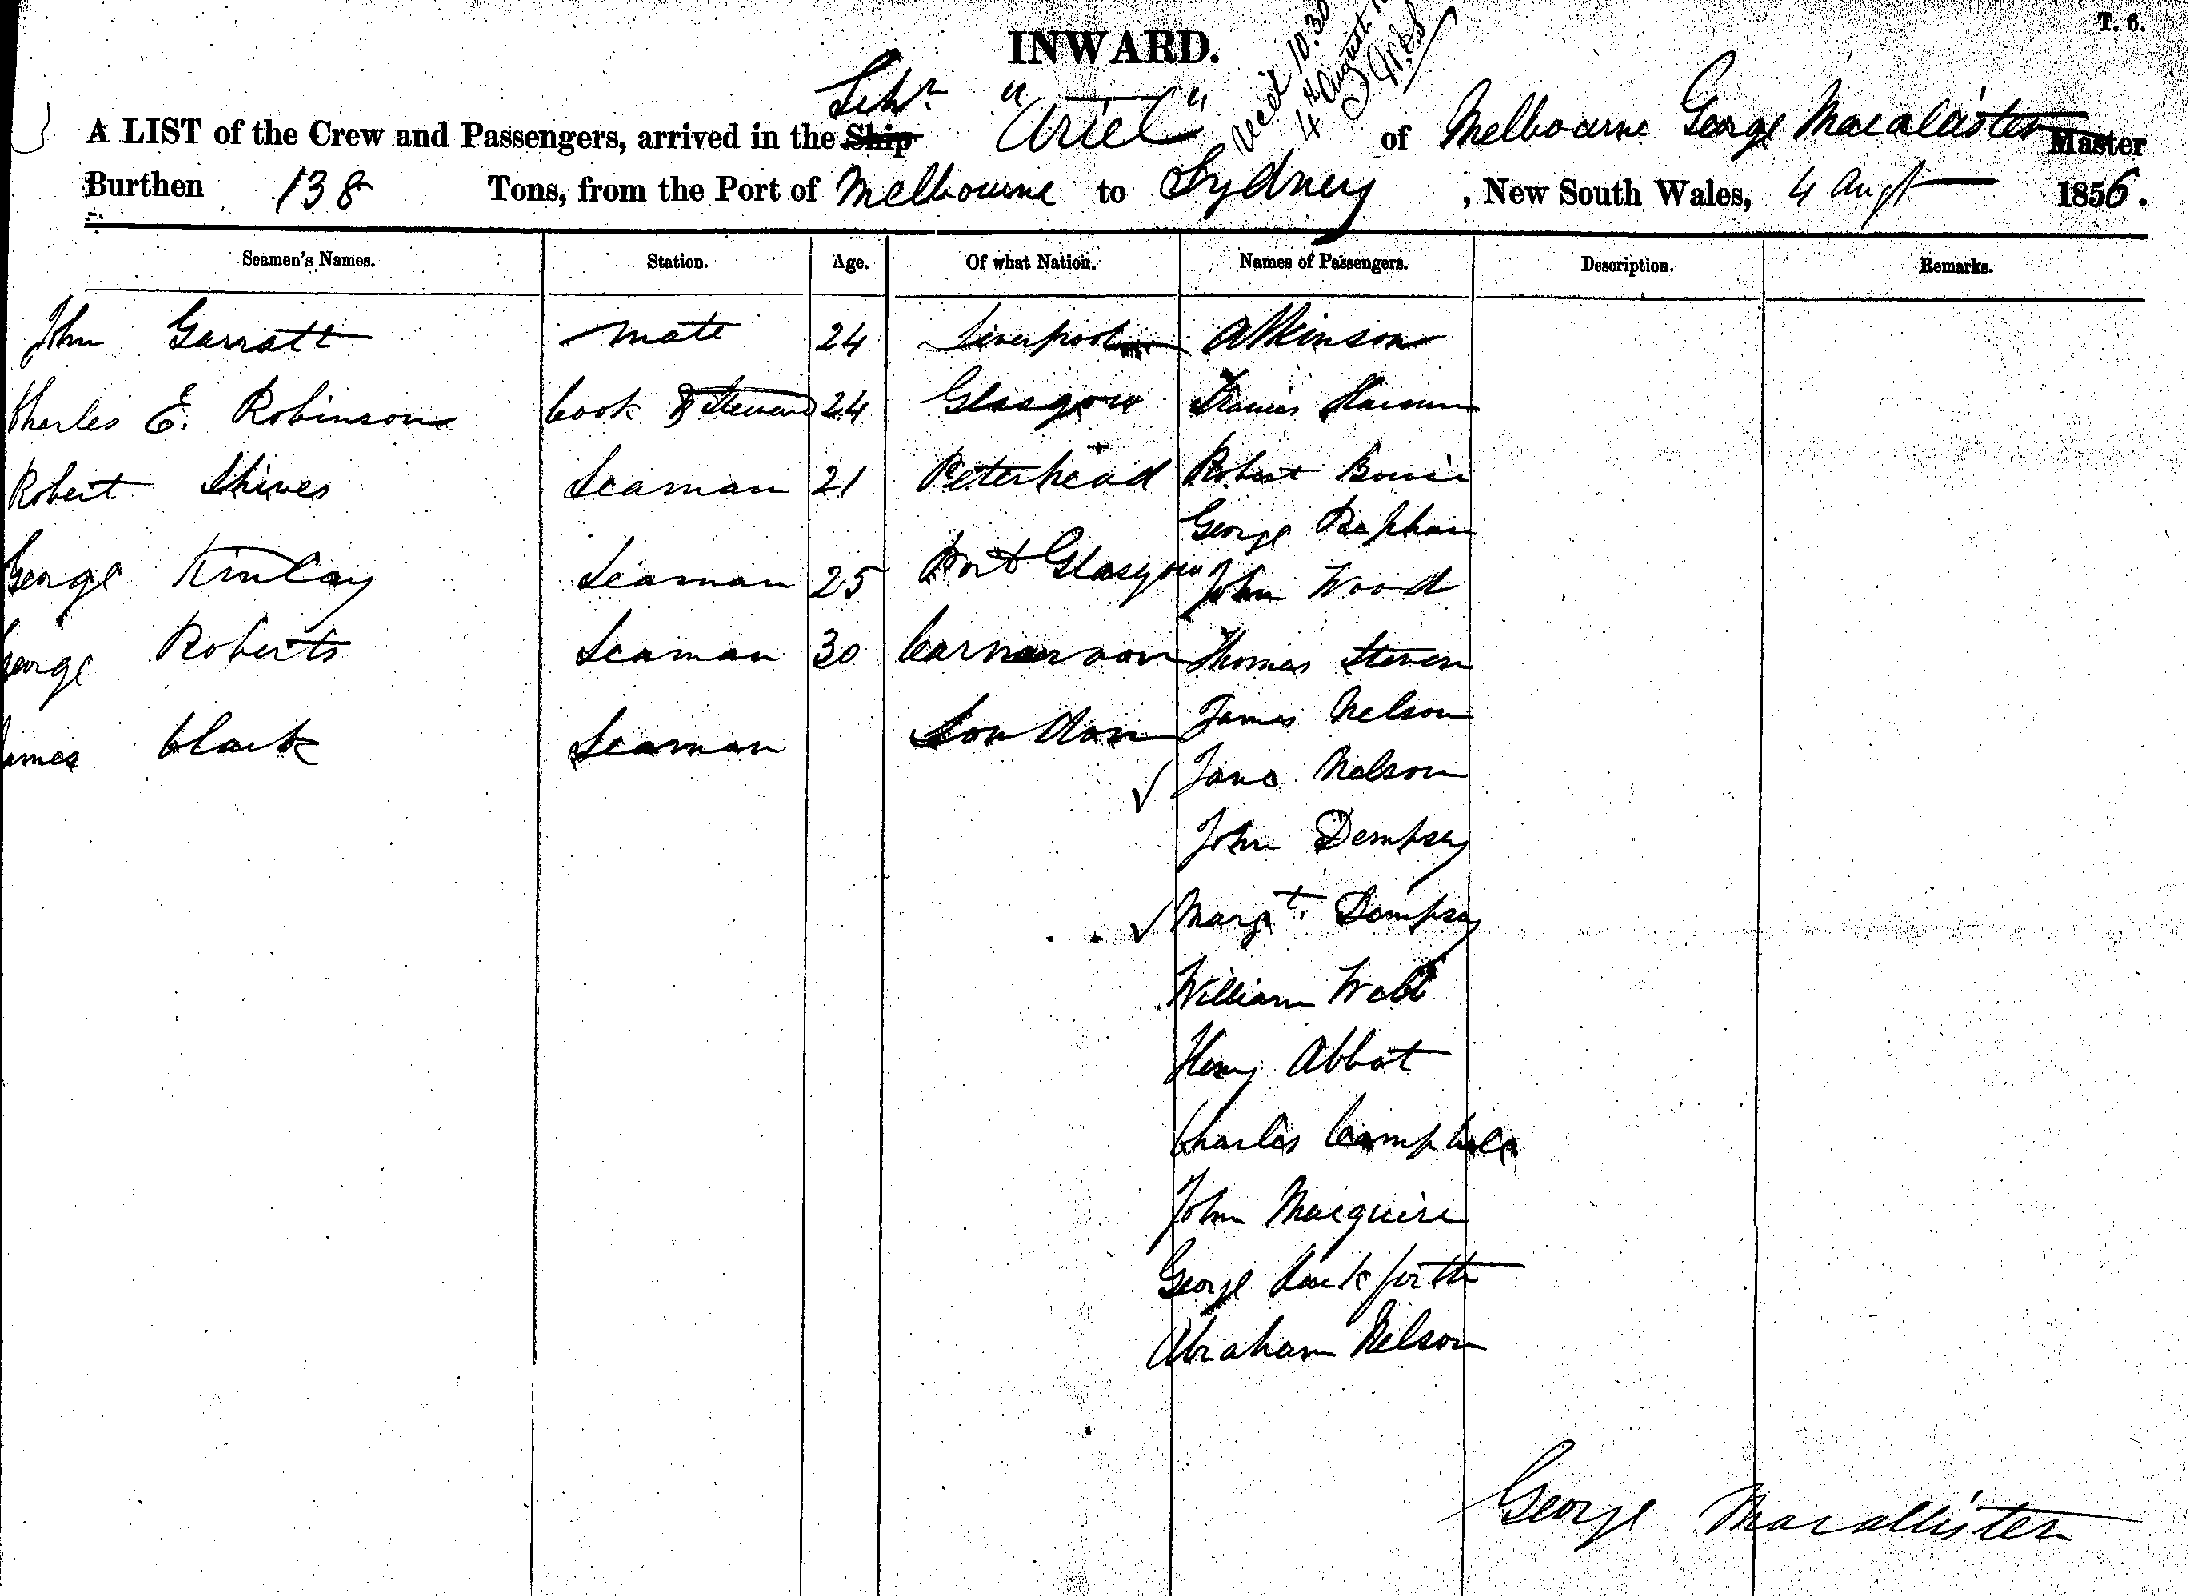 T. 6.
INWARD.
Rec'd 10.30
4th August
Schr
A LIST of the Crew and Passengers, arrived in the Ship "Ariel" of Melbourne George Macalister Master
Burthen 138 Tons, from the Port of Melbourne to Sydney, New South Wales, 4 Augt 1856.
Seamen's Names. Station. Age. Of what Nation. Names of Passengers. Description. Remarks.
John Garratt mate 24 Liverpool Atkinson
Charles E. Robinson Cook & Steward 24 Glasgow Francis
Robert Shives Seaman 21 Peterhead Robert Bowie
George
George Kinlay Seaman 25 Port Glasgow John Wood
George Roberts Seaman 30 Carnarvon Thomas Steven
James Clark Seaman London James Nelson
✓ Jane Nelson
John Dempsey
✓ Margt. Dempsey
William Webb
Henry Abbot
Charles Campbell
John Macguire
George
Abraham Nelson
George Macallister